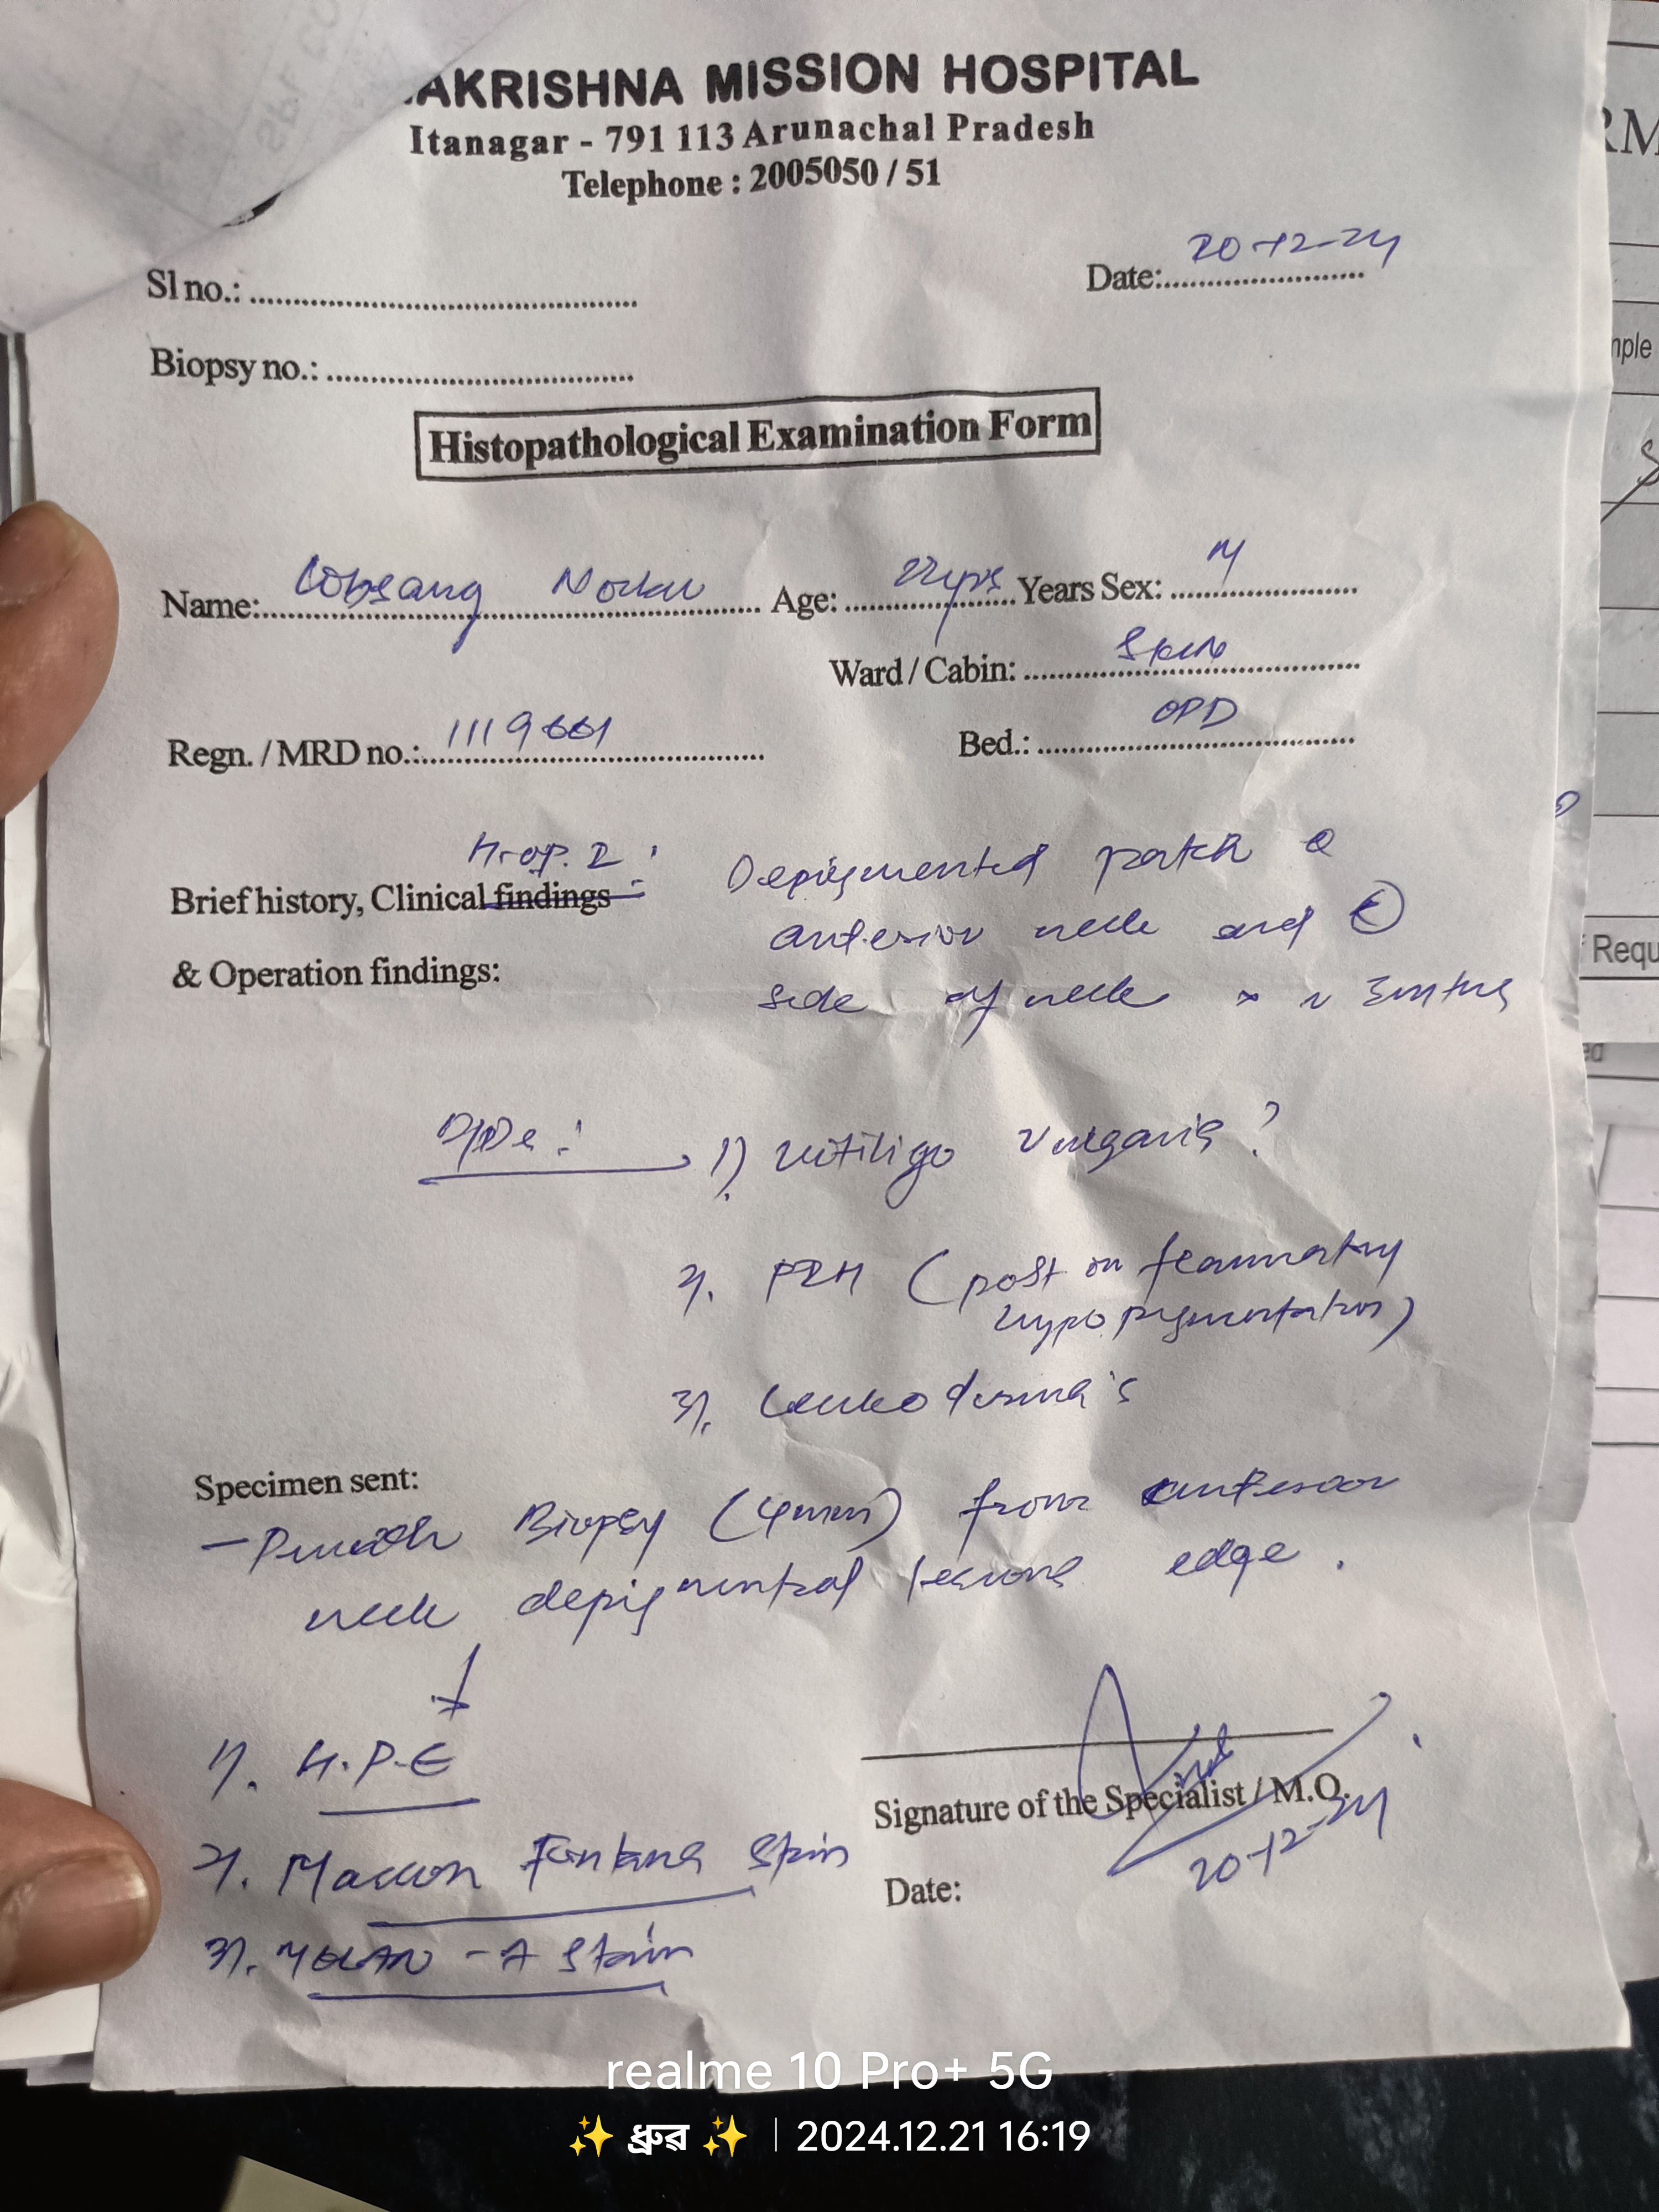 AKRISHNA MISSION HOSPITAL
Itanagar - 791 113 Arunachal Pradesh
Telephone : 2005050 / 51
Sl no.:
Date: 20-12-24
Biopsy no.:
Histopathological Examination Form
Name: Lobsang Age: Years Sex: M
Ward / Cabin: Skin
Regn. / MRD no.: 1119661
Bed.: OPD
Brief history, Clinical findings : Depigmented patch
anterior neck and
& Operation findings: side of neck
1) vitiligo vulgaris ?
2). PIH (post inflammatory
hypopigmentation)
3). Leukoderma's
Specimen sent:
- Punch Biopsy (4mm) from anterior
neck depigmented lesions edge .
1). H.P.E
2). Masson Fontana Stain
Signature of the Specialist / M.O.
20-12-24
Date:
3). MELAN - A Stain
RM
mple
Requ
realme 10 Pro+ 5G
✨ ধ্ৰুৱ ✨ | 2024.12.21 16:19